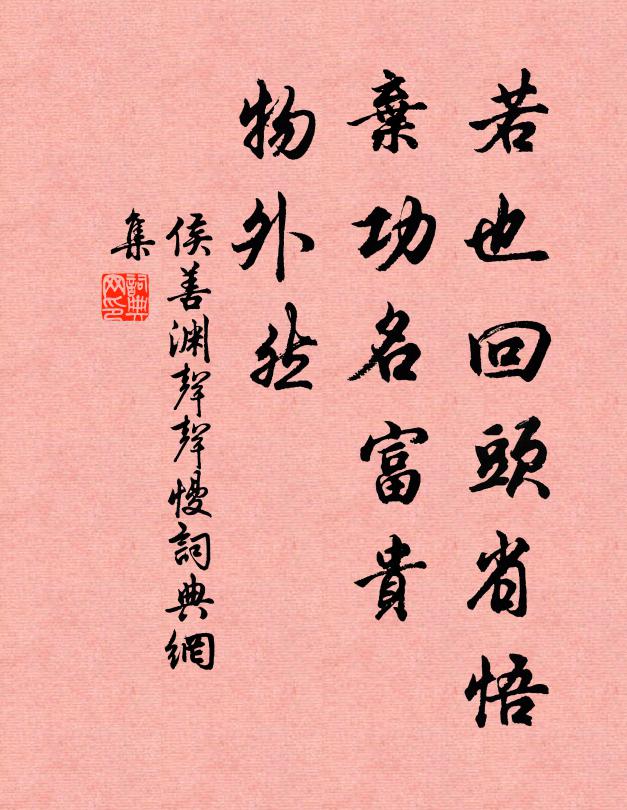 若也回頭省悟
棄功名富貴
物外然
侯善渊聲聲慢詞典網
集
詞典
网印